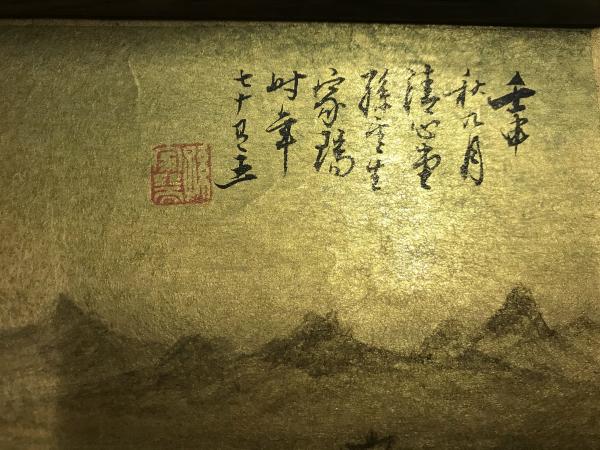 壬申
秋九月
清心堂
孫雲生
家瑞
时年
七十有五